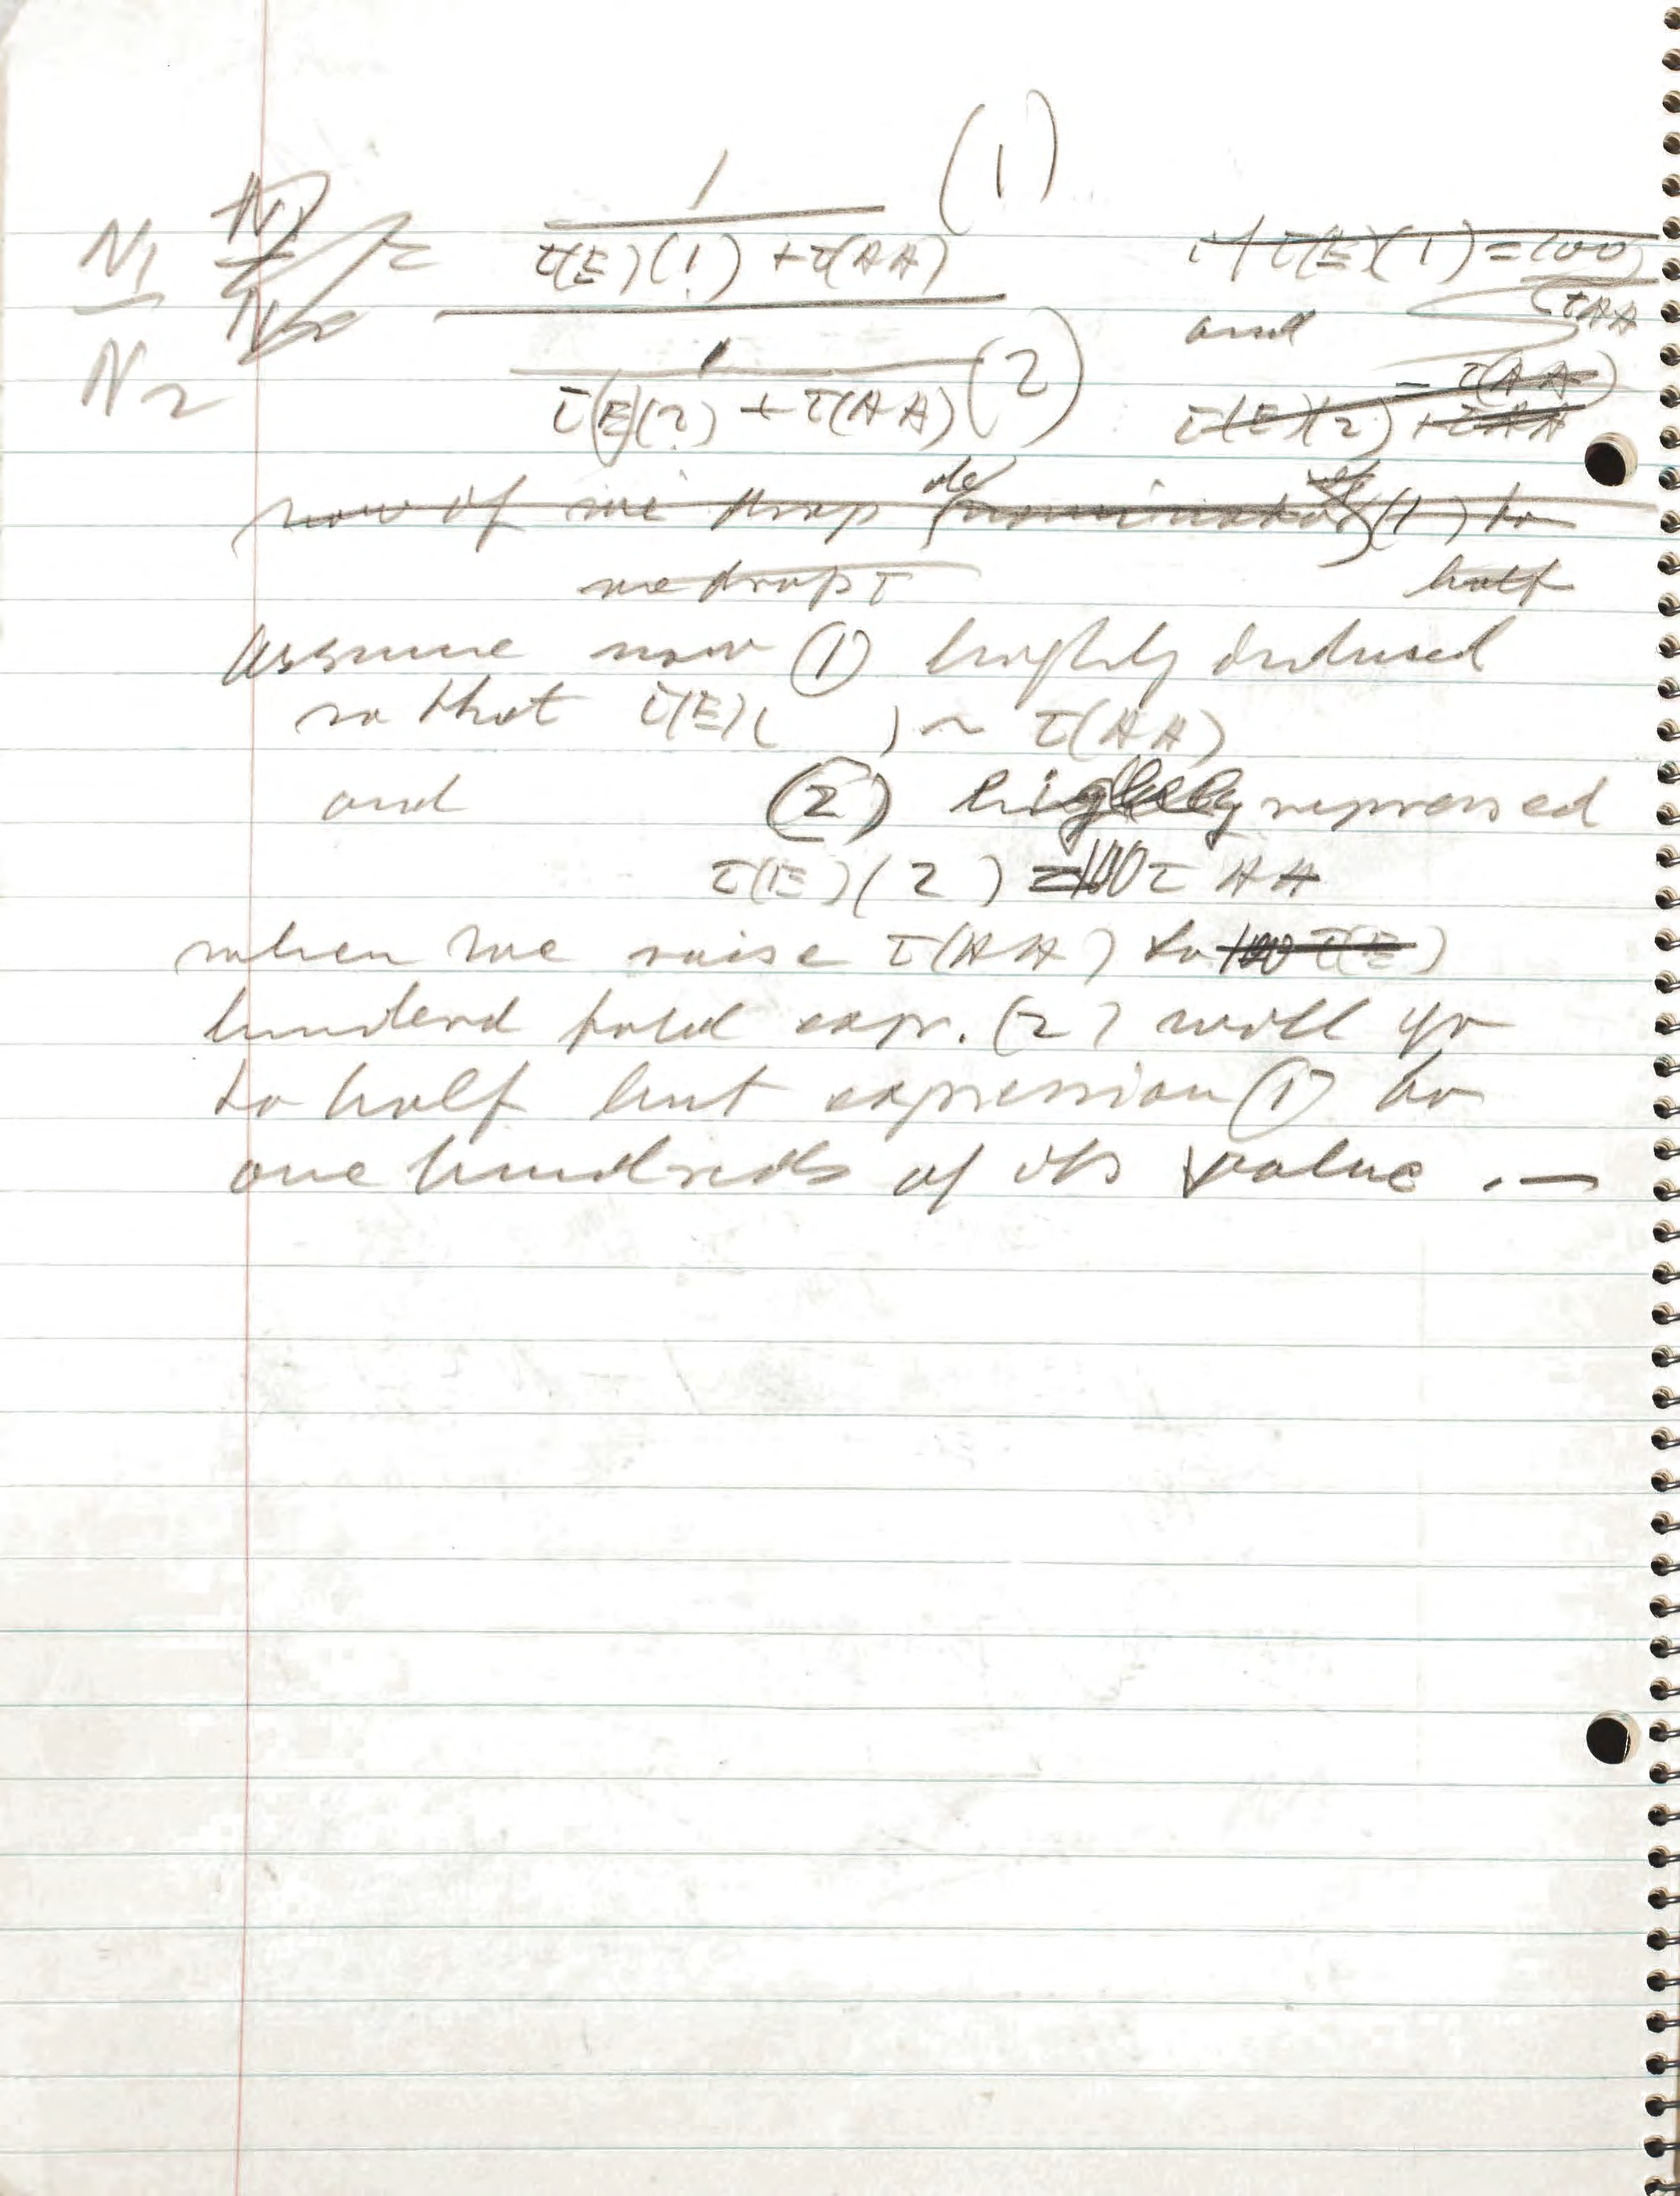 N1 / N2 = 1 / (τ(E)(1) + τ(AA)) (1)
1 / (τ(E)(2) + τ(AA)) (2)
if τ(E)(1) = 100 τAA
and
τ(E)(2) - τ(AA) + τAA
now if we drop denominator of (1) to
half
we drop τ
assume now (1) highly induced
so that τ(E)( ) ~ τ(AA)
and (2) highly repressed
τ(E)(2) = 100 τ AA
when we raise τ(AA) to 100 τ(E)
hunderd fold expr. (2) will go
to half but expression (1) to
one hundreds of its value . —